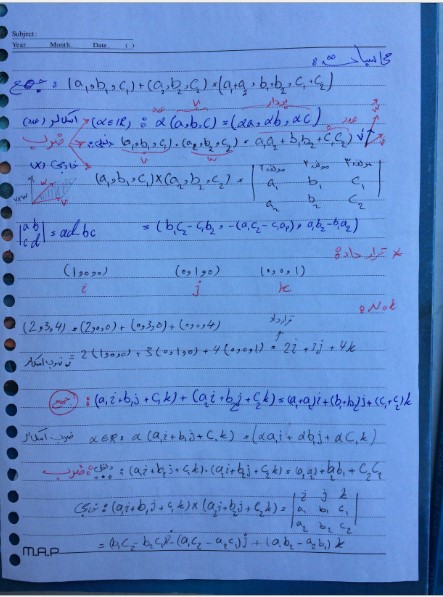 Subject :
Year . Month . Date . ( )
محاسبات
جمع : (a₁,b₁,c₁)+(a₂,b₂,c₂)=(a₁+a₂, b₁+b₂, c₁+c₂)
اسکالر (عدد) (α∈ℝ) : α(a,b,c)=(αa, αb, αc)
ضرب داخلی : (a₁,b₁,c₁).(a₂,b₂,c₂)=a₁a₂+b₁b₂+c₁c₂
خارجی (a₁,b₁,c₁)×(a₂,b₂,c₂) = | a₁ b₁ c₁
a₂ b₂ c₂ |
|a b
c d| = ad-bc = (b₁c₂-c₁b₂, -(a₁c₂-c₁a₂), a₁b₂-b₁a₂)
* قرارداد :
(1,0,0) (0,1,0) (0,0,1)
i j k
قرارداد
(2,3,4)=(2,0,0)+(0,3,0)+(0,0,4)
ضرب اسکالر 2(1,0,0)+3(0,1,0)+4(0,0,1) = 2i+3j+4k
جمع : (a₁i+b₁j+c₁k)+(a₂i+b₂j+c₂k)=(a₁+a₂)i+(b₁+b₂)j+(c₁+c₂)k
ضرب اسکالر α∈ℝ: α(a₁i+b₁j+c₁k)=(αa₁i+αb₁j+αc₁k)
ضرب داخلی : (a₁i+b₁j+c₁k).(a₂i+b₂j+c₂k)=(a₁a₂)+b₁b₂+c₁c₂
خارجی : (a₁i+b₁j+c₁k)×(a₂i+b₂j+c₂k)= | i j k
a₁ b₁ c₁
a₂ b₂ c₂ |
=(b₁c₂-b₂c₁)i-(a₁c₂-a₂c₁)j+(a₁b₂-a₂b₁)k
M.A.P